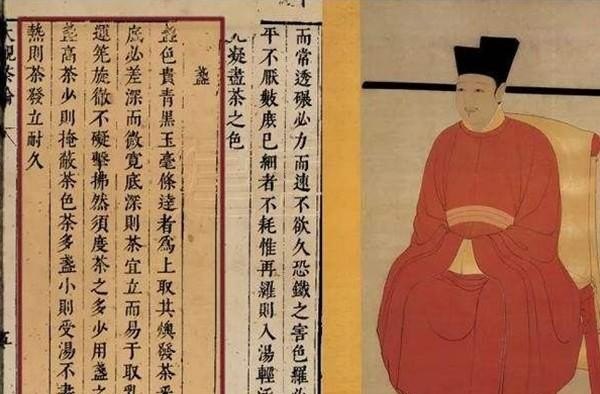 而常透碾必力而速不欲久恐鐵之害色羅必
平不厭數庶已細者不耗惟再羅則入湯輕泛
凝盡茶之色
盞
盞色貴青黑玉毫條達者爲上取其燠發茶
底必差深而微寬底深則茶宜立而易于取乳
運筅旋徹不礙擊拂然須度茶之多少用盞之
盞高茶少則掩蔽茶色茶多盞小則受湯不盡
熱則茶發立耐久
大觀茶論
五